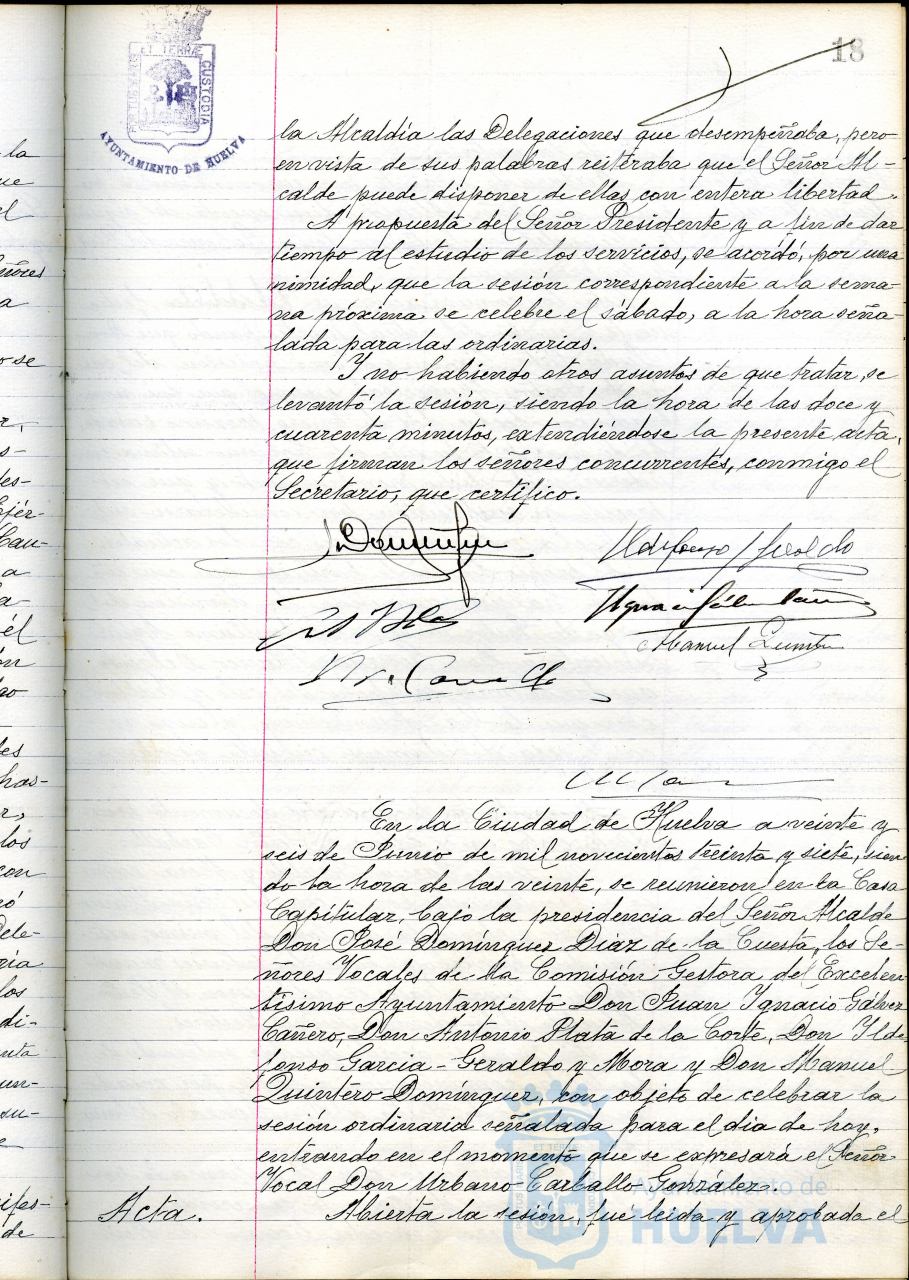 18
ET TERRÆ
CUSTODIA
AYUNTAMIENTO DE HUELVA
la Alcaldía las Delegaciones que desempeñaba, pero
en vista de sus palabras reiteraba que el Señor Al-
calde puede disponer de ellas con entera libertad.
A propuesta del Señor Presidente y a fin de dar
tiempo al estudio de los servicios, se acordó, por una
nimidad, que la sesión correspondiente a la sema-
na próxima se celebre el sábado, a la hora seña-
lada para las ordinarias.
Y no habiendo otros asuntos de que tratar, se
levantó la sesión, siendo la hora de las doce y
cuarenta minutos, extendiéndose la presente acta,
que firman los señores concurrentes, conmigo el
Secretario, que certifico.
Manuel
En la Ciudad de Huelva a veinte y
seis de Junio de mil novecientos treinta y siete, sien
do la hora de las veinte, se reunieron en la Casa
Capitular, bajo la presidencia del Señor Alcalde
Don José Domínguez Díaz de la Cuesta, los Se-
ñores Vocales de la Comisión Gestora del Excelen
tísimo Ayuntamiento Don Juan Ignacio Gálvez
Cañero, Don Antonio Plata de la Corte, Don Ilde
fonso Garcia-Geraldo y Mora y Don Manuel
Quintero Domínguez, con objeto de celebrar la
sesión ordinaria señalada para el dia de hoy,
entrando en el momento que se expresará el Señor
Vocal Don Urbano Carballo González.
Acta. Abierta la sesión, fué leida y aprobada el
Ayuntamiento de
HUELVA